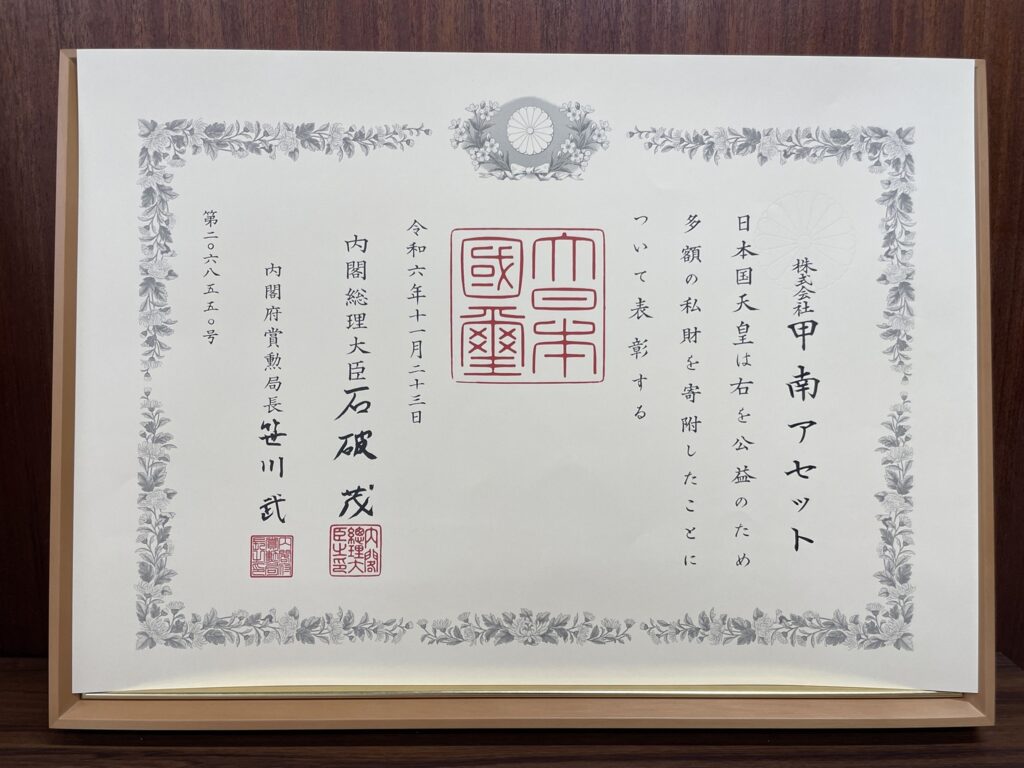 株式会社甲南アセット
日本国天皇は右を公益のため
多額の私財を寄附したことに
ついて表彰する
大日本
國璽
令和六年十一月二十三日
内閣総理大臣石破茂
内閣総理大臣之印
内閣府賞勲局長笹川武
第二〇六八五五〇号